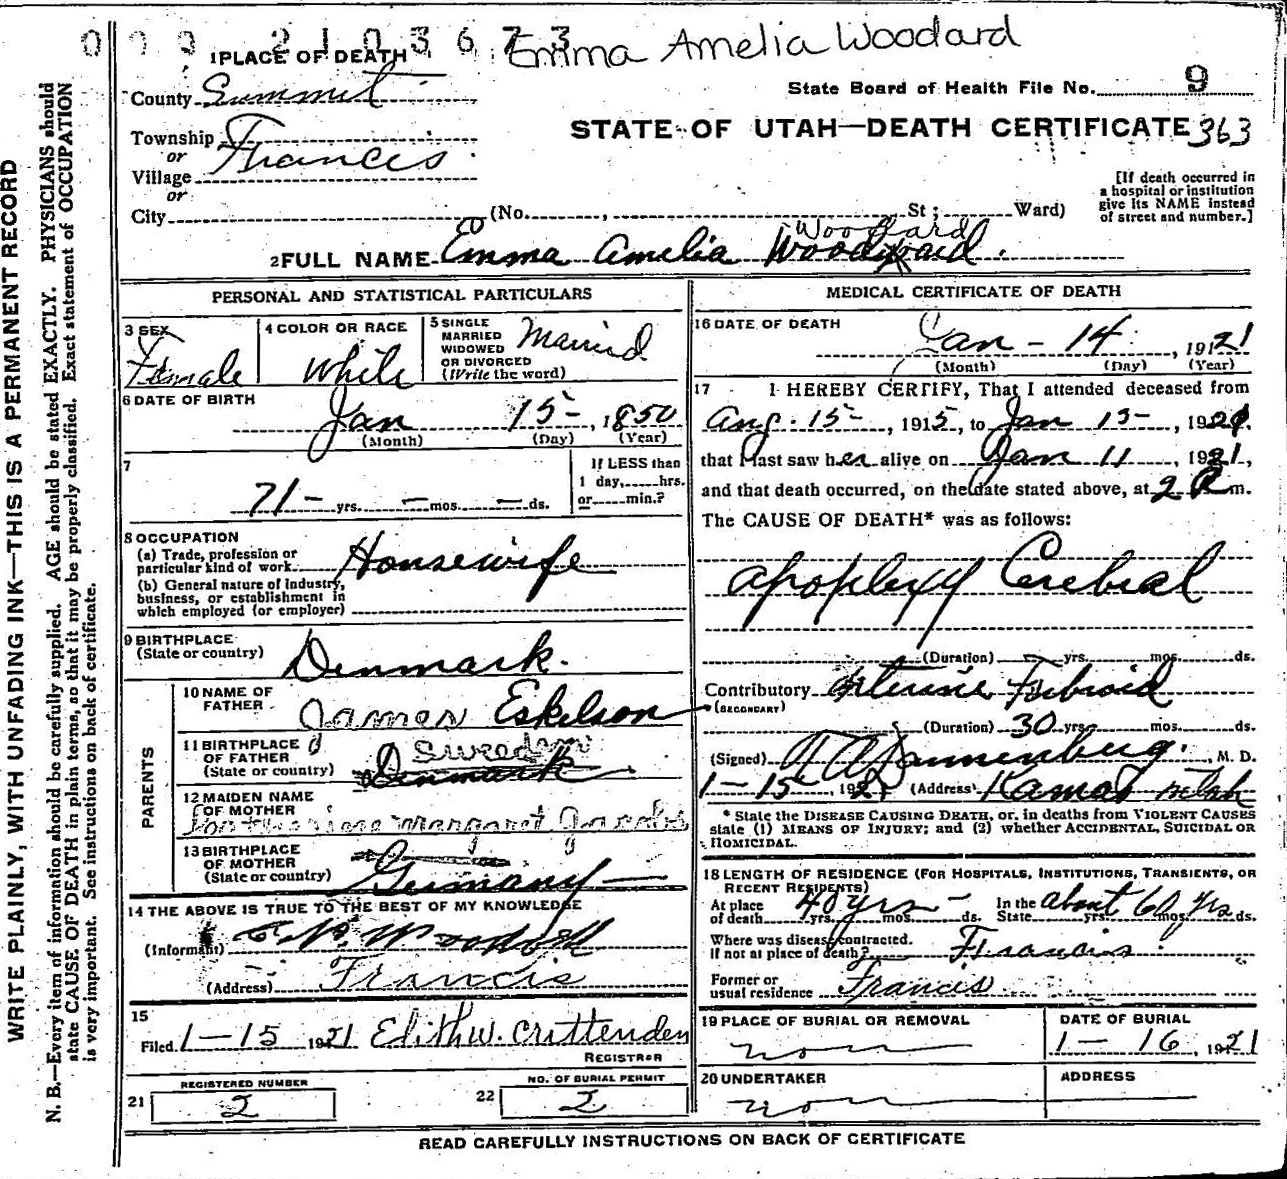 0 0 0 2 1 0 3 6 7 3
Emma Amelia Woodard
1 PLACE OF DEATH
County Summit
State Board of Health File No. 9
STATE OF UTAH—DEATH CERTIFICATE 363
Township
or
Village Francis
or
City (No. , St ; Ward)
[If death occurred in
a hospital or institution
give its NAME instead
of street and number.]
Woodard
2 FULL NAME Emma Amelia
PERSONAL AND STATISTICAL PARTICULARS
3 SEX Female
4 COLOR OR RACE White
5 SINGLE
MARRIED
WIDOWED
OR DIVORCED
(Write the word) Married
6 DATE OF BIRTH
Jan 15 , 1850
(Month) (Day) (Year)
7
71 yrs. — mos. — ds.
If LESS than
1 day, hrs.
or min.?
8 OCCUPATION
(a) Trade, profession or
particular kind of work Housewife
(b) General nature of Industry,
business, or establishment in
which employed (or employer)
9 BIRTHPLACE
(State or country) Denmark.
PARENTS
10 NAME OF
FATHER James Eskelson
11 BIRTHPLACE
OF FATHER
(State or country) Sweeden
Denmark
12 MAIDEN NAME
OF MOTHER
Margaret Jacobs
13 BIRTHPLACE
OF MOTHER
(State or country) Germany
14 THE ABOVE IS TRUE TO THE BEST OF MY KNOWLEDGE
(Informant)
(Address) Francis
15
Filed 1-15 1921 Edith W. Crittenden
REGISTRAR
21 REGISTERED NUMBER
2
22 NO. OF BURIAL PERMIT
2
MEDICAL CERTIFICATE OF DEATH
16 DATE OF DEATH
Jan - 14 , 1921
(Month) (Day) (Year)
17 I HEREBY CERTIFY, That I attended deceased from
Aug. 15 , 1915, to Jan 13 , 1921.
that I last saw her alive on Jan 11 , 1921,
and that death occurred, on the date stated above, at 2 P m.
The CAUSE OF DEATH* was as follows:
Apoplexy Cerebral
(Duration) yrs. mos. ds.
Contributory Uterine Fibroid
(SECONDARY)
(Duration) 30 yrs. mos. ds.
(Signed) , M. D.
1-15, 1921 (Address) Kamas Utah
* State the DISEASE CAUSING DEATH, or, in deaths from VIOLENT CAUSES
state (1) MEANS OF INJURY; and (2) whether ACCIDENTAL, SUICIDAL OR
HOMICIDAL.
18 LENGTH OF RESIDENCE (FOR HOSPITALS, INSTITUTIONS, TRANSIENTS, OR
RECENT RESIDENTS)
At place
of death 40 yrs. mos. ds.
In the
State about 60 yrs ds.
Where was disease contracted.
if not at place of death? Francis
Former or
usual residence Francis
19 PLACE OF BURIAL OR REMOVAL
DATE OF BURIAL
1 - 16 , 1921
20 UNDERTAKER
ADDRESS
READ CAREFULLY INSTRUCTIONS ON BACK OF CERTIFICATE
WRITE PLAINLY, WITH UNFADING INK—THIS IS A PERMANENT RECORD
N. B.—Every item of information should be carefully supplied. AGE should be stated EXACTLY. PHYSICIANS should
state CAUSE OF DEATH in plain terms, so that it may be properly classified. Exact statement of OCCUPATION
is very important. See instructions on back of certificate.